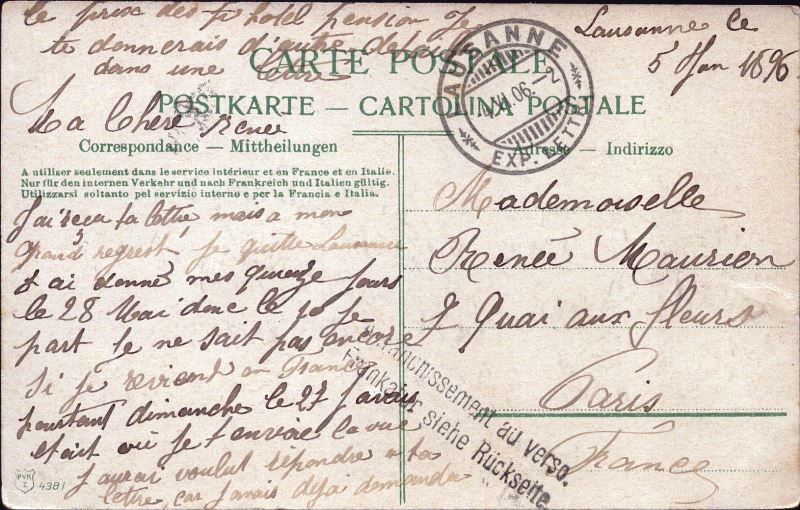 le prix des hotel pension Je
te donnerais d'autre
dans une lettre
Lausanne le
5 1896
CARTE POSTALE
POSTKARTE — CARTOLINA POSTALE
LAUSANNE
XI.06.
EXP. LETTR.
Ma Chere Renee
Correspondance — Mittheilungen
Adresse — Indirizzo
A utiliser seulement dans le service intérieur et en France et en Italie.
Nur für den internen Verkehr und nach Frankreich und Italien gültig.
Utilizzarsi soltanto pel servizio interno e per la Francia e Italia.
J'ai recu ta lettre mais a mon
grand regrest je quitte Lausanne
ai donné mes quinze jours
le 28 Mai donc le 10 je
part Je ne sait pas encore
Si je reviend en France
pourtant dimanche le 27 j'avais
etait où je t'envoie la vue
J'aurai voulut répondre a ta
lettre, car j'avais deja demandé
Mademoiselle
Renée Maurion
7 Quai aux fleurs
Paris
France
Affranchissement au verso.
Frankatur siehe Rückseite.
PVK
Z
4381